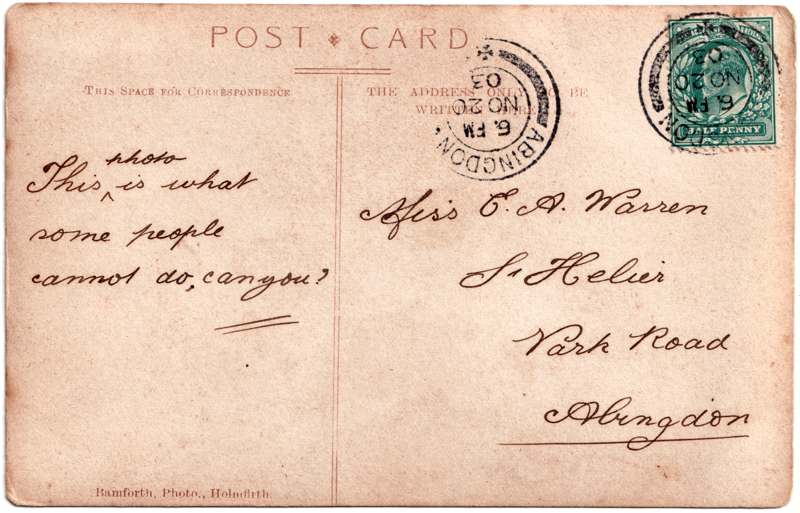 POST CARD
THIS SPACE FOR CORRESPONDENCE
THE ADDRESS ONLY TO BE
WRITTEN HERE
ABINGDON
6. PM
NO 20
03
6. PM
NO 20
03
HALF PENNY
This photo is what
some people
cannot do, can you?
Miss E. A. Warren
St Helier
Park Road
Abingdon
Bamforth, Photo., Holmfirth.